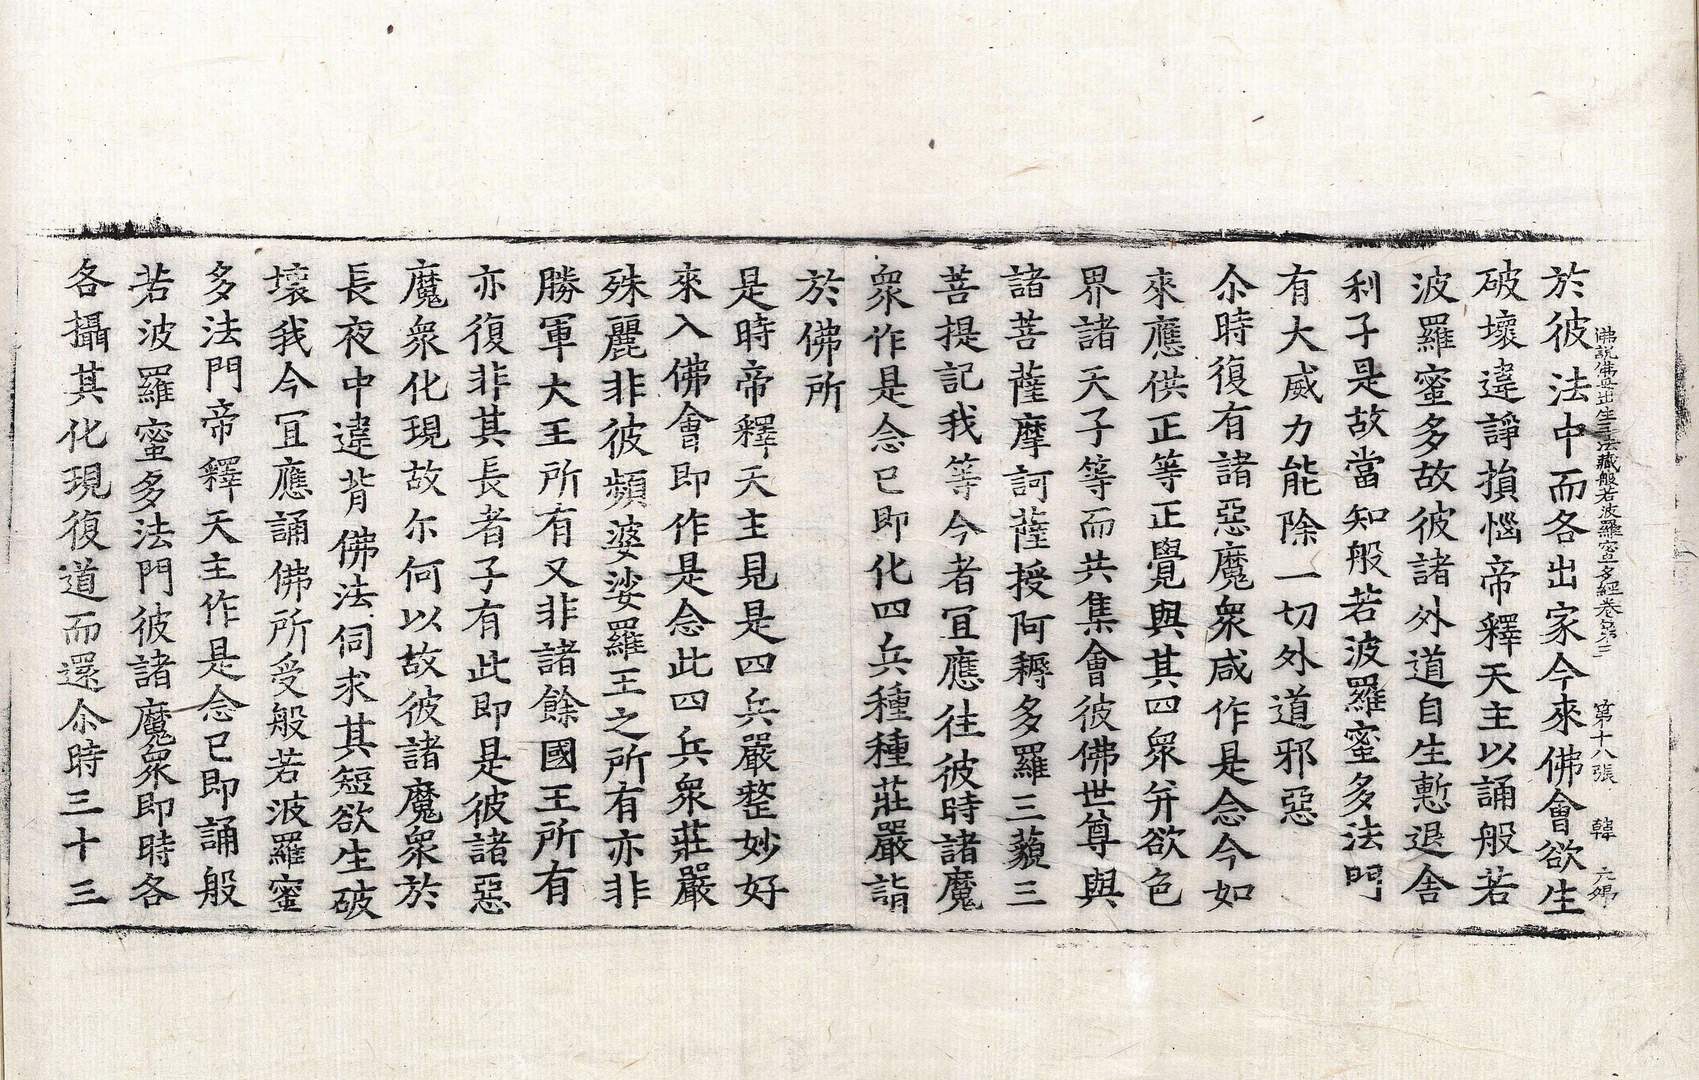 佛說佛母出生三法藏般若波羅蜜多經卷第三 第十八張 韓
於彼法中而各出家今來佛會欲生
破壞違諍損惱帝釋天主以誦般若
波羅蜜多故彼諸外道自生慙退舍
利子是故當知般若波羅蜜多法門
有大威力能除一切外道邪惡
尒時復有諸惡魔衆咸作是念今如
來應供正等正覺與其四衆并欲色
界諸天子等而共集會彼佛世尊與
諸菩薩摩訶薩授阿耨多羅三藐三
菩提記我等今者冝應往彼時諸魔
衆作是念已即化四兵種種莊嚴詣
於佛所
是時帝釋天主見是四兵嚴整妙好
來入佛會即作是念此四兵衆莊嚴
殊麗非彼頻婆娑羅王之所有亦非
勝軍大王所有又非諸餘國王所有
亦復非其長者子有此即是彼諸惡
魔衆化現故尓何以故彼諸魔衆於
長夜中違背佛法伺求其短欲生破
壞我今冝應誦佛所受般若波羅蜜
多法門帝釋天主作是念已即誦般
若波羅蜜多法門彼諸魔衆即時各
各攝其化現復道而還尒時三十三